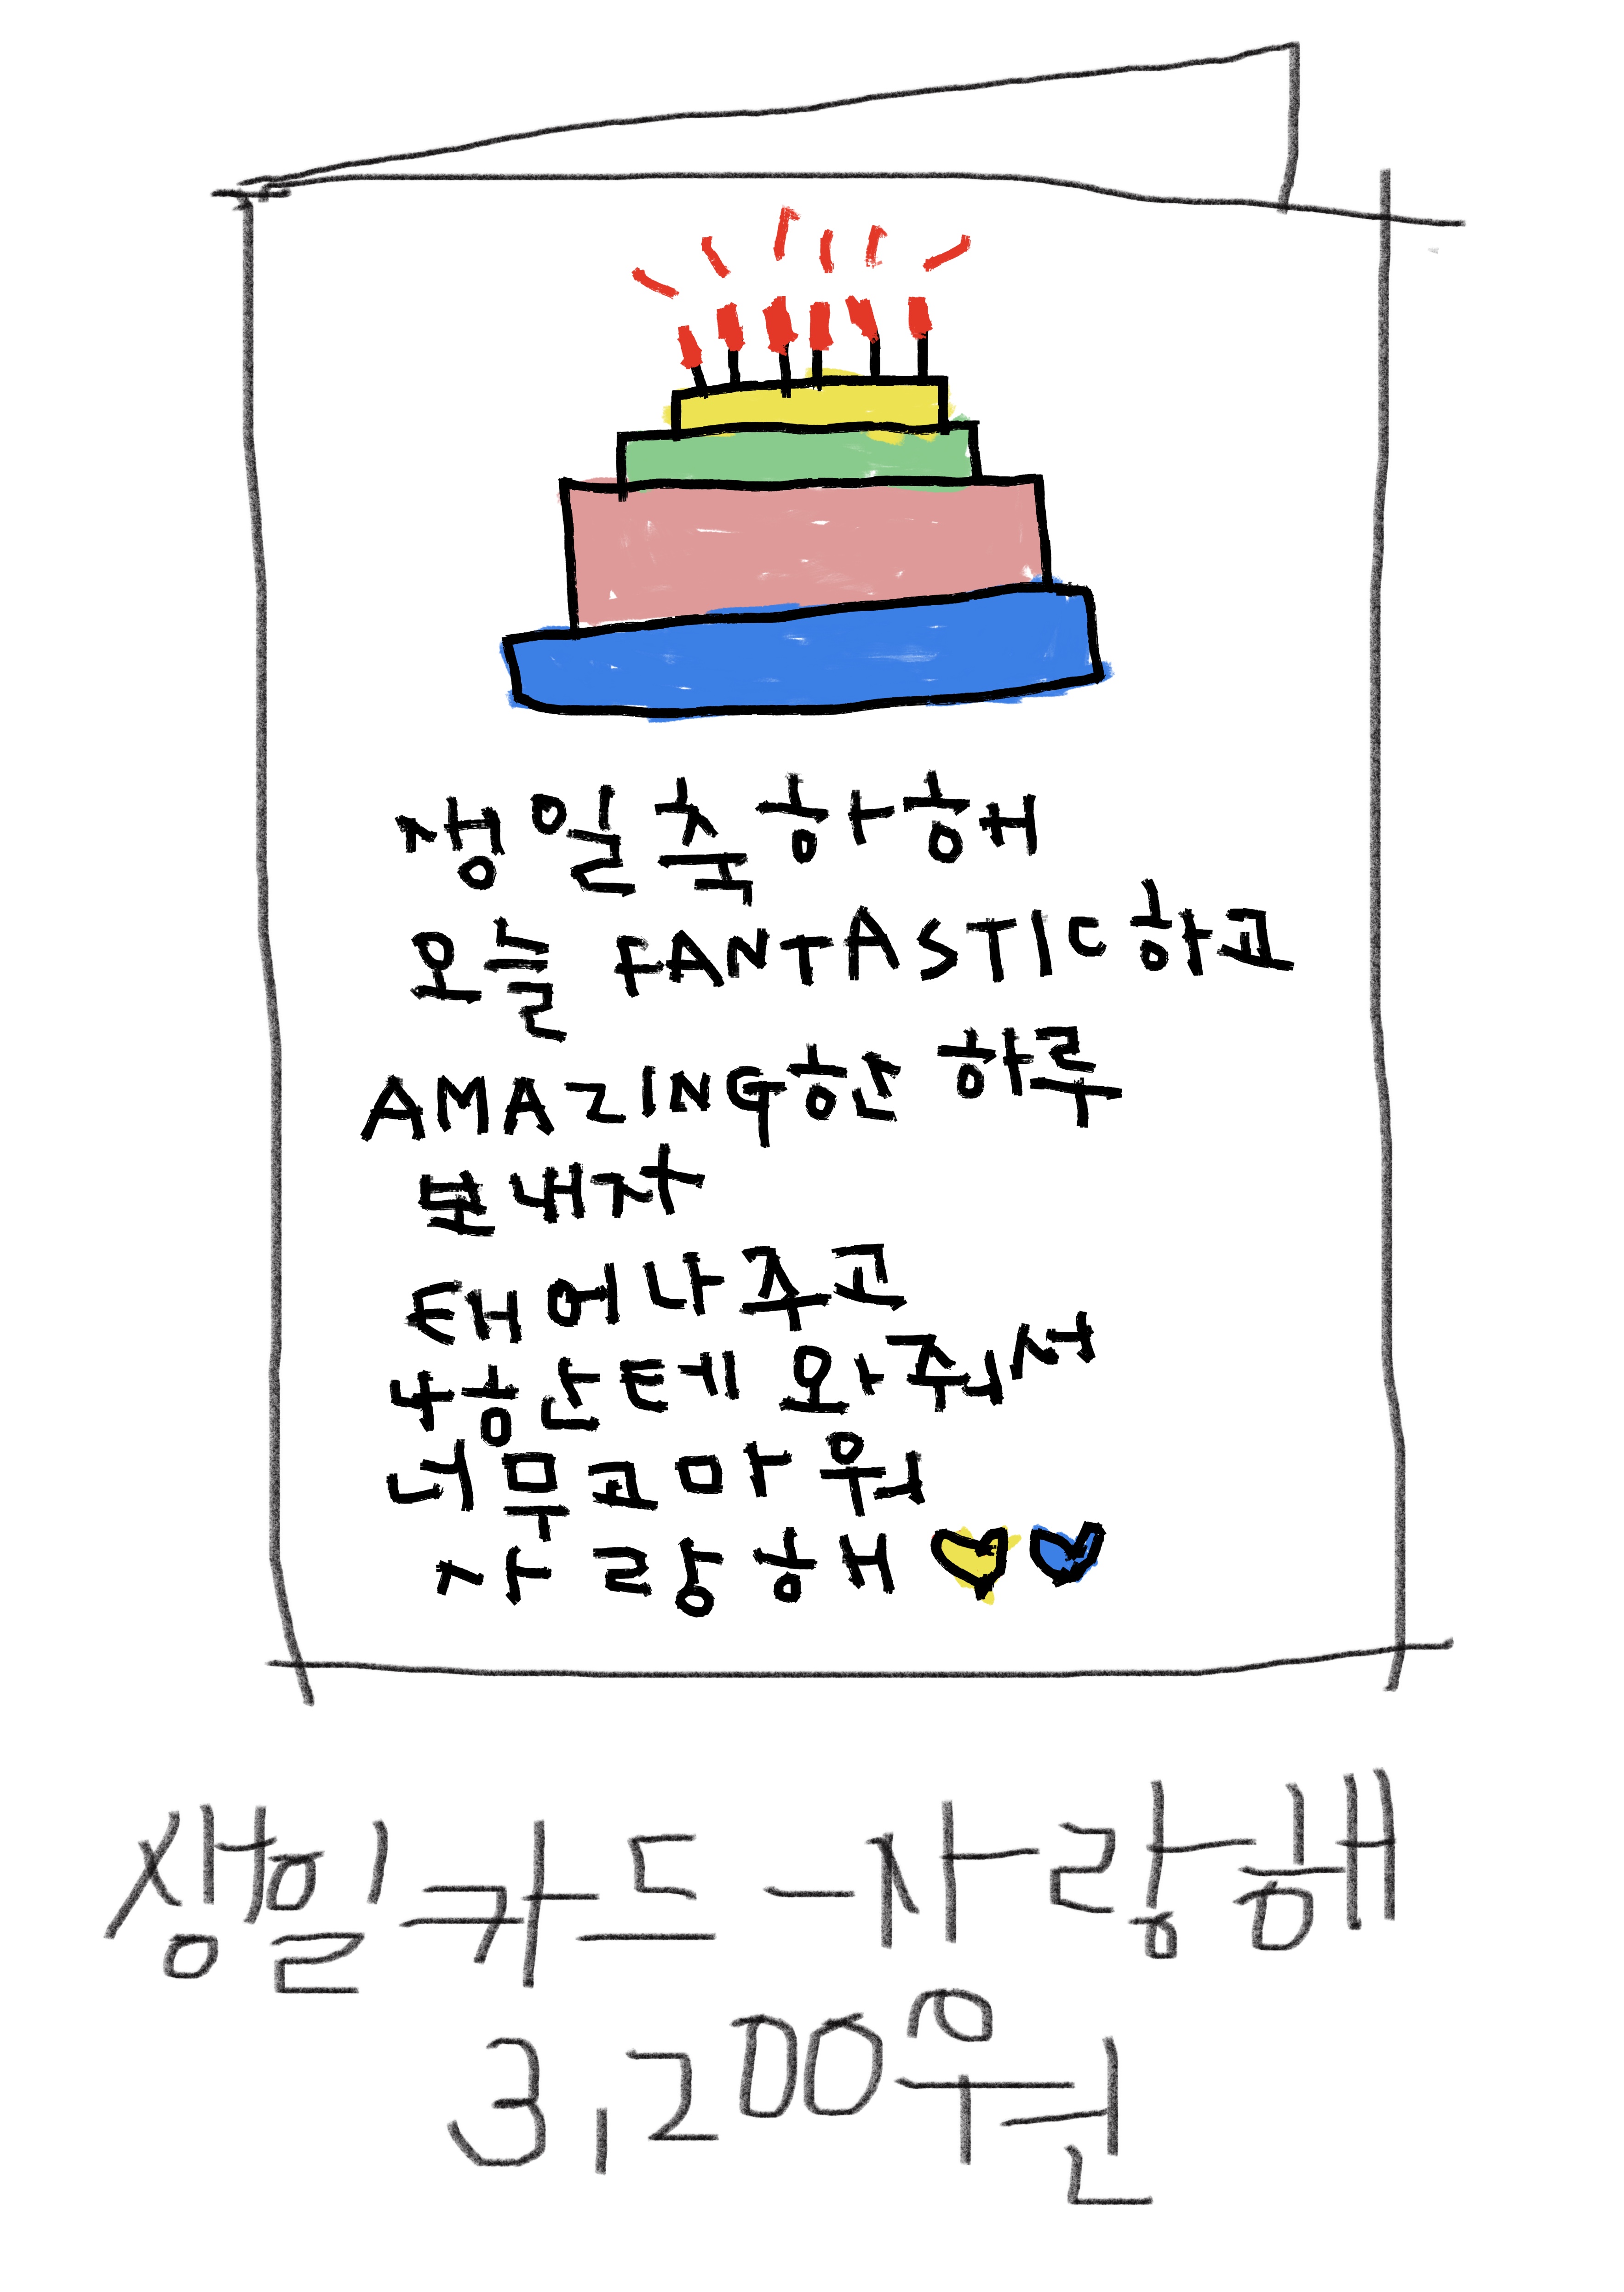 생일축하해
오늘 FANTASTIC하고
AMAZING한 하루
보내자
태어나주고
나한테 와줘서
너무고마워
사랑해
생일카드-사랑해
3,200원